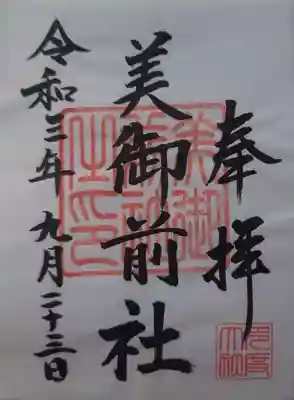 奉拝
美御前社
令和三年九月二十三日
美御前社之印